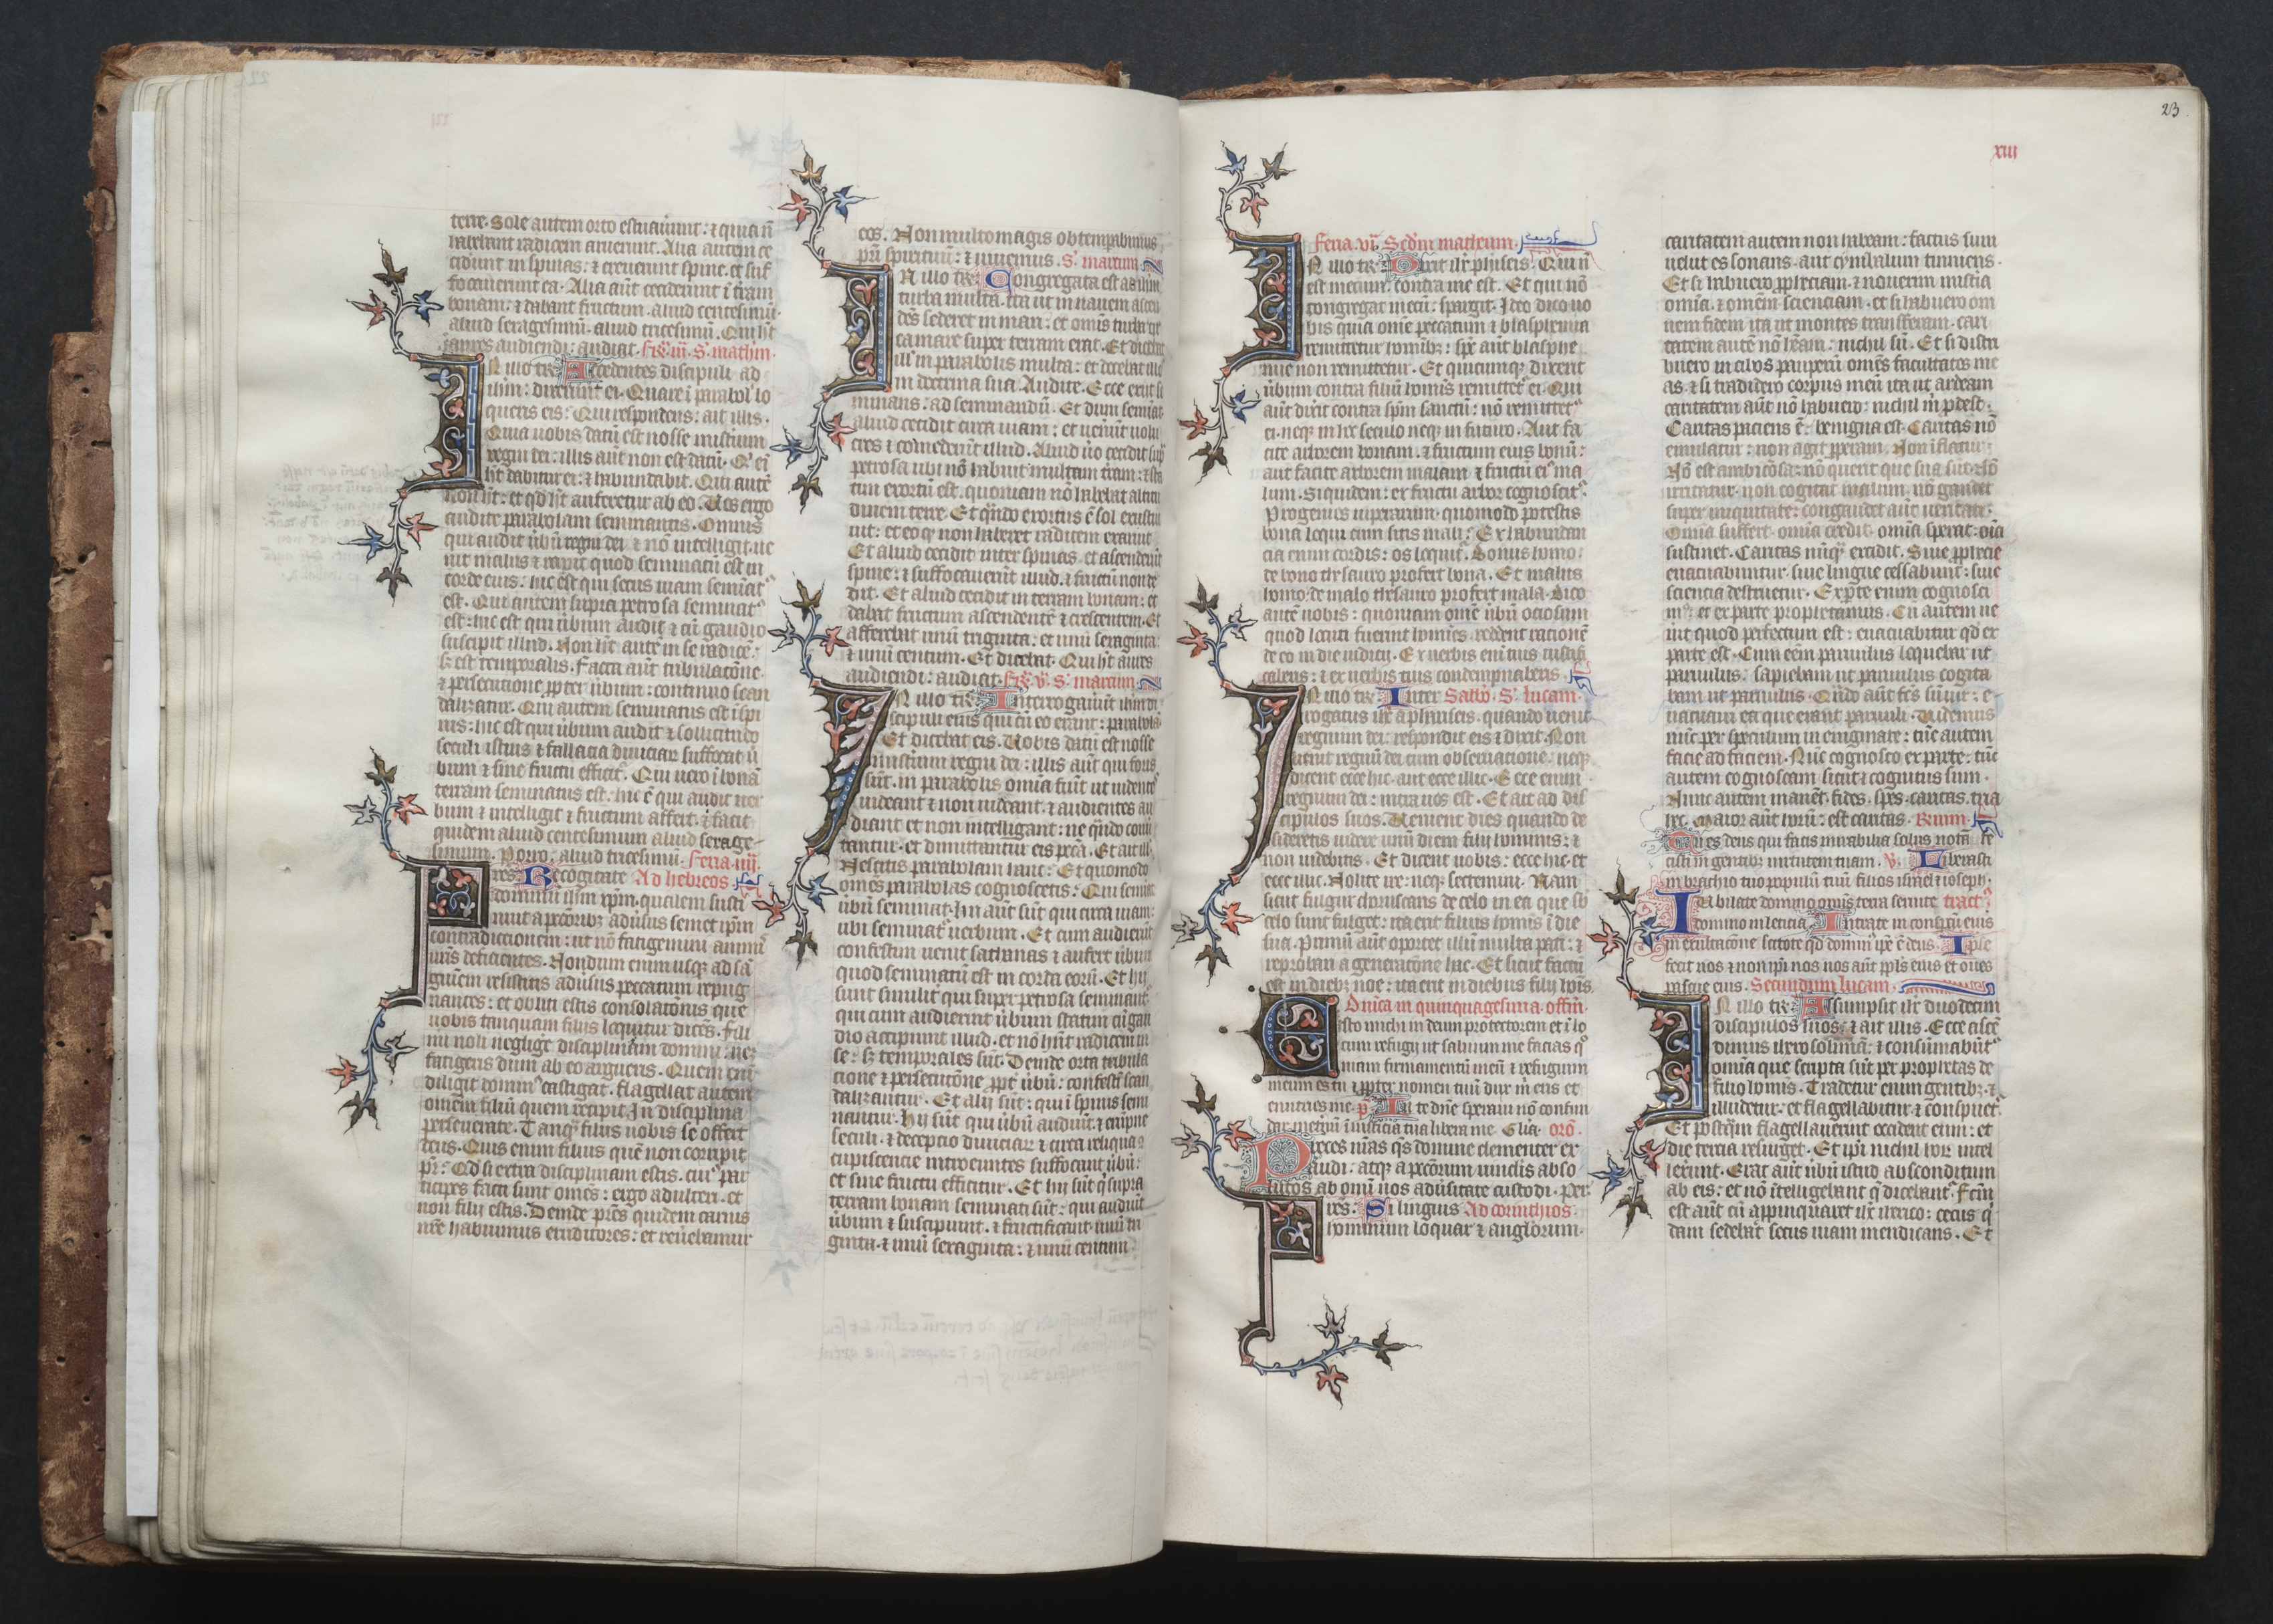 terre. Sole autem orto estuauerunt: ⁊ quia nō
habebant radicem aruerunt. Alia autem ce
ciderunt in spinas: ⁊ creuerunt spine. et suf
focauerunt ea. Alia aūt ceciderunt ī terram
bonam: ⁊ dabant fructum. aliud centesimū.
aliud sexagesimū. aliud tricesimū. Qui hꝫt
aures audiendi: audiat. S. mathm.
IN illo tꝑꝛ Accedentes discipuli ad
ihm: dixerunt ei. Quare ī parabol' lo
queris eis: Qui respondens: ait illis.
Quia uobis datū est nosse misterium
regni dei: illis aūt non est datū. Qi ei
hꝫt dabitur ei: ⁊ habundabit. Qui autē
non hꝫt: et qd hꝫt auferetur ab eo. Uos ergo
audite parabolam seminantis. Omnis
qui audit ūbū regni dei ⁊ nō intelligit: ue
nit malus ⁊ rapit quod seminatū est in
corde eius: hic est qui secus uiam seminat
est. Qui autem supra petrosa seminat
est: hic est qui ūbum audit ⁊ cū gaudio
suscipit illud. Non hꝫt aute in se radicē:
sꝫ est temporalis. Facta aūt tribulacōne
⁊ persecutione ꝓpter ūbum: continuo scan
dalizatur. Qui autem seminatus est ī spi
nis: hic est qui ūbum audit ⁊ sollicitudo
seculi istius ⁊ fallacia diuiciaꝝ suffocat ū
bum ⁊ sine fructu efficit. Qui uero ī bonā
terram seminatus est: hic ē qui audit uer
bum ⁊ intelligit ⁊ fructum affert. ⁊ facit
quidem aliud centesimum aliud sexage
simum. Porro: aliud tricesimū. Feria iiij.
Fres: Recogitate Ad hebreos
dominū ihm xpm. qualem susti
nuit a peccoribꝫ aduersus semet ipm
contradictionem: ut nō fatigemini animis
uris deficientes. Nondum enim usqꝫ ad sā
guinem restitistis aduersus peccatum repug
nantes: et obliti estis consolatōnis que
uobis tanquam filijs loquitur dicēs. Fili
mi noli neglige disciplinam domini: neꝫ
fatigeris dum ab eo argueris. Quem enī
diligit domin' castigat. flagellat autem
omnem filiū quem recipit. In disciplina
perseuerate. Tanqꝫ filijs uobis se offert
deus. Quis enim filius quē non corripit
pr: Qd si extra disciplinam estis. cui' par
ticipes facti sunt omēs: ergo adulteri. et
non filij estis. Deinde prēs quidem carnis
nrē habuimus eruditores: et reuerebamur
eos. Non multo magis obtemperabimus
pri spirituū: ⁊ uiuemus. S. marcum.
IN illo tꝑꝛ Congregata est ad ihm
turba multa. ita ut in nauem ascen
dēs sederet in mari: et omīs turba cir
ca mare super terram erat. Et docebat
ill' in parabolis multa: et docebat illos
in doctrina sua. Audite. Ecce exijt se
minans: ad seminandū. Et dum seminat
aliud cecidit circa uiam: et uenerūt uolu
cres ⁊ comederūt illud. Aliud ūo cecidit sup
petrosa ubi nō habuit multam trram: ⁊ sta
tim exortū est. quoniam nō habebat altitu
dinem terre. Et qndo exortus ē sol exestua
uit: et eo qꝫ non haberet radicem exaruit
Et aliud cecidit inter spinas. et ascenderūt
spine: ⁊ suffocauerūt illud. ⁊ fructū non de
dit. Et aliud cecidit in terram bonam: et
dabat fructum ascendentē ⁊ crescentem. Et
afferebat unū triginta: et unū sexaginta
⁊ unū centum. Et dicebat. Qui hꝫt aures
audiendi: audiat. S. marcum.
IN illo tꝑꝛ Interrogauerūt ihm di
scipuli eius qui cū eo erant: parabolas
Et dicebat eis. Uobis datū est nosse
misterium regni dei: illis aūt qui foris
sūt. in parabolis omīa fiūt: ut uidentes
uideant ⁊ non uideant. ⁊ audientes au
diant et non intelligant: ne qndo conu
tantur. et dimittantur eis pecca. Et ait illis.
Nescitis parabolam hanc: Et quomodo
omēs parabolas cognoscetis: Qui seminat
ūbū seminat. Hij aūt sūt qui circa uiam:
ubi seminat uerbum. Et cum audierūt
confestim uenit sathanas ⁊ aufert ūbum
quod seminatū est in corda eorū. Et hij
sunt similiter qui super petrosa seminant'.
qui cum audierint ūbum statim cū gau
dio accipiunt illud. et nō hūt radicem in
se: sꝫ temporales sūt. Deinde orta tribula
cione ⁊ persecutōne ꝓpt ūbū: confestī scan
dalizantur. Et alij sūt: qui ī spinis semi
nantur. Hij sūt qui ūbū audiūt. ⁊ erūpne
seculi. ⁊ decepcio diuiciaꝝ ⁊ circa reliqua
cupiscencie introeuntes suffocant ūbū:
et sine fructu efficitur. Et hij sūt q supra
terram bonam seminati sūt: qui audiūt
ūbum ⁊ suscipiunt. ⁊ fructificant unū tri
ginta. ⁊ unū sexaginta: ⁊ unū centum
23
xiij
Feria. vi. Sedm matheum.
IN illo tꝑꝛ Dixit ihc phiseis. Qui nō
est mecum: contra me est. Et qui nō
congregat mecū: spargit. Ideo dico uo
bis quia omē peccatum ⁊ blasphemia
remittetur hominibꝫ: sps aūt blasphe
mie non remittetur. Et quicumqꝫ dixerit
ūbum contra filiū hominis remittet' ei. Qui
aūt dixit contra spm sanctū: nō remittet'
ei. neqꝫ in hoc seculo neqꝫ in futuro. Aut fa
cite arborem bonam. ⁊ fructum eius bonū:
aut facite arborem malam ⁊ fructū ei' ma
lum. Siquidem: ex fructu arbor cognoscit'.
Progenies uiperarum: quomodo potestis
bona loqui cum sitis mali: Ex habundan
cia enim cordis: os loquit'. Bonus homo:
de bono thesauro profert bona. Et malus
homo: de malo thesauro profert mala. Dico
autē uobis: quoniam omē ūbū ociosum
quod locuti fuerint homines. reddent rationē
de eo in die iudicij. Ex uerbis enī tuis iustifi
caberis: ⁊ ex uerbis tuis condempnaberis.
IN illo tꝑꝛ Inter Sabbo. S. lucam.
rogatus ihc a phariseis. quando uenit
regnum dei: respondit eis ⁊ dixit. Non
uenit regnū dei cum obseruacione: neqꝫ
dicent ecce hic. aut ecce illic. Ecce enim
regnum dei: intra uos est. Et ait ad dis
cipulos suos. Uenient dies quando de
sideretis uidere unū diem filij hominis: ⁊
non uidebitis. Et dicent uobis: ecce hic. et
ecce illic. Nolite ire: neqꝫ sectemini. Nam
sicut fulgur choruscans de celo in ea que sb
celo sunt fulget: ita erit filius hominis ī die
sua. Primū aūt oportet illū multa pati: ⁊
reprobari a generatōne hac. Et sicut factū
est in diebꝫ noe: ita erit in diebus filij hois.
Dnica in quinquagesima. offm.
Esto michi in deum protectorem et ī lo
cum refugij ut saluum me facias qm
iam firmamentū meū ⁊ refugium
meum es tu ⁊ ꝓpter nomen tuū dux m eris et
enutries me. ps In te dne speraui nō confun
dar ineternū ī iusticia tua libera me. Glia. orō.
Preces nras qs domine clementer ex
audi: atqꝫ a peccorum uinclis abso
lutos ab omī nos aduersitate custodi. Per.
Fres: Si linguis Ad corinthios.
hominum loquar ⁊ anglorum.
caritatem autem non habeam: factus sum
uelut es sonans. aut cymbalum tinniens.
Et si habuero ꝓphetiam. ⁊ nouerim mistia
omīa. ⁊ omēm scienciam. et si habuero om
nem fidem ita ut montes transferam. cari
tatem autē nō habeam: nichil sū. Et si distri
buero in cibos pauperū omēs facultates me
as. ⁊ si tradidero corpus meū ita ut ardeam
caritatem aūt nō habuero: nichil m ꝓdest.
Caritas paciens ē: benigna est. Caritas nō
emulatur: non agit ꝑperam. Non īflatur:
Nō est ambiciosa: nō querit que sua sūt. Nō
irritatur. non cogitat malum. nō gaudet
super iniquitate: congaudet aūt ueritati.
Omīa suffert. omīa credit. omīa sperat. oīa
sustinet. Caritas nūqꝫ excidit. Siue ꝓphecie
euacuabuntur. siue lingue cessabunt: siue
sciencia destruetur. Ex parte enim cognosci
m': et ex parte prophetamus. Cū autem ue
nit quod perfectum est: euacuabitur qd ex
parte est. Cum eēm paruulus loquebar ut
paruulus: sapiebam ut paruulus cogita
bam ut paruulus. Qndo aūt fcs sū uir: e
uacuaui ea que erant paruuli. Uidemus
nūc per speculum in enigmate: tūc autem
facie ad faciem. Nūc cognosco ex parte: tūc
autem cognoscam sicut ⁊ cognitus sum.
Nunc autem manēt. fides. spes. caritas. tria
hec. Maior aūt horū: est caritas.
Tu es deus qui facis mirabilia solus notā fe
cisti in gentibꝫ uirtutem tuam. V. Liberasti
in brachio tuo populū tuū filios israel ⁊ ioseph.
Iubilate domino omīs terra seruite tract'
domino in leticia. Intrate in conspectu eius
in exultacōne scitote qd domin' ipse ē deus. Ipse
fecit nos ⁊ non ipi nos nos aūt ppls eius et oues
pascue eius. Secundum lucam.
IN illo tꝑꝛ Assumpsit ihc duodecim
discipulos suos: ⁊ ait illis. Ecce ascē
dimus iherosolimā: ⁊ consūmabūt'
omīa que scripta sūt per prophetas de
filio hominis. Tradetur enim gentibꝫ. ⁊
illudetur. et flagellabitur. ⁊ conspuet'.
Et postqꝫ flagellauerint occident eum: et
die tercia resurget. Et ipi nichil hoꝝ intel
lexerunt. Erat aūt ūbū istud absconditum
ab eis: et nō ītelligebant q dicebant'. Fcm
est aūt cū appinquaret ihc iherico: cecus q
dam sedebat secus uiam mendicans. Et